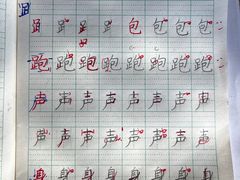 𧾷 𧾷 𧾷 𧾷 包 包 包 包
跑 跑 跑 跑 跑 跑 跑 跑
声 声 声 声 声 声 声 声
声 声 声 声 声 声 声 声
身 身 身 身 身 身 身 身